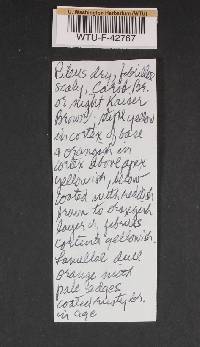 U. Washington Herbarium/WTU
WTU-F-42767
Pileus dry, fibrillose
scaly, Carob Br.
or slight Kaiser
Brown; stipe yellow
in cortex of base
& orangish in
cortex above apex
yellowish, below
coated with reddish
brown to orangish
layer of fibrils
context yellowish.
Lamellae dull
orange with
pale edges
coated rusty br.
in age